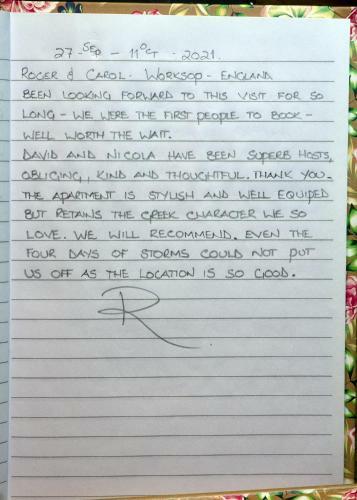 27 SEP - 11 OCT - 2021.
ROGER & CAROL. WORKSOP - ENGLAND
BEEN LOOKING FORWARD TO THIS VISIT FOR SO
LONG - WE WERE THE FIRST PEOPLE TO BOOK -
WELL WORTH THE WAIT.
DAVID AND NICOLA HAVE BEEN SUPERB HOSTS,
OBLIGING, KIND AND THOUGHTFUL. THANK YOU.
THE APARTMENT IS STYLISH AND WELL EQUIPED
BUT RETAINS THE GREEK CHARACTER WE SO
LOVE. WE WILL RECOMMEND. EVEN THE
FOUR DAYS OF STORMS COULD NOT PUT
US OFF AS THE LOCATION IS SO GOOD.
R